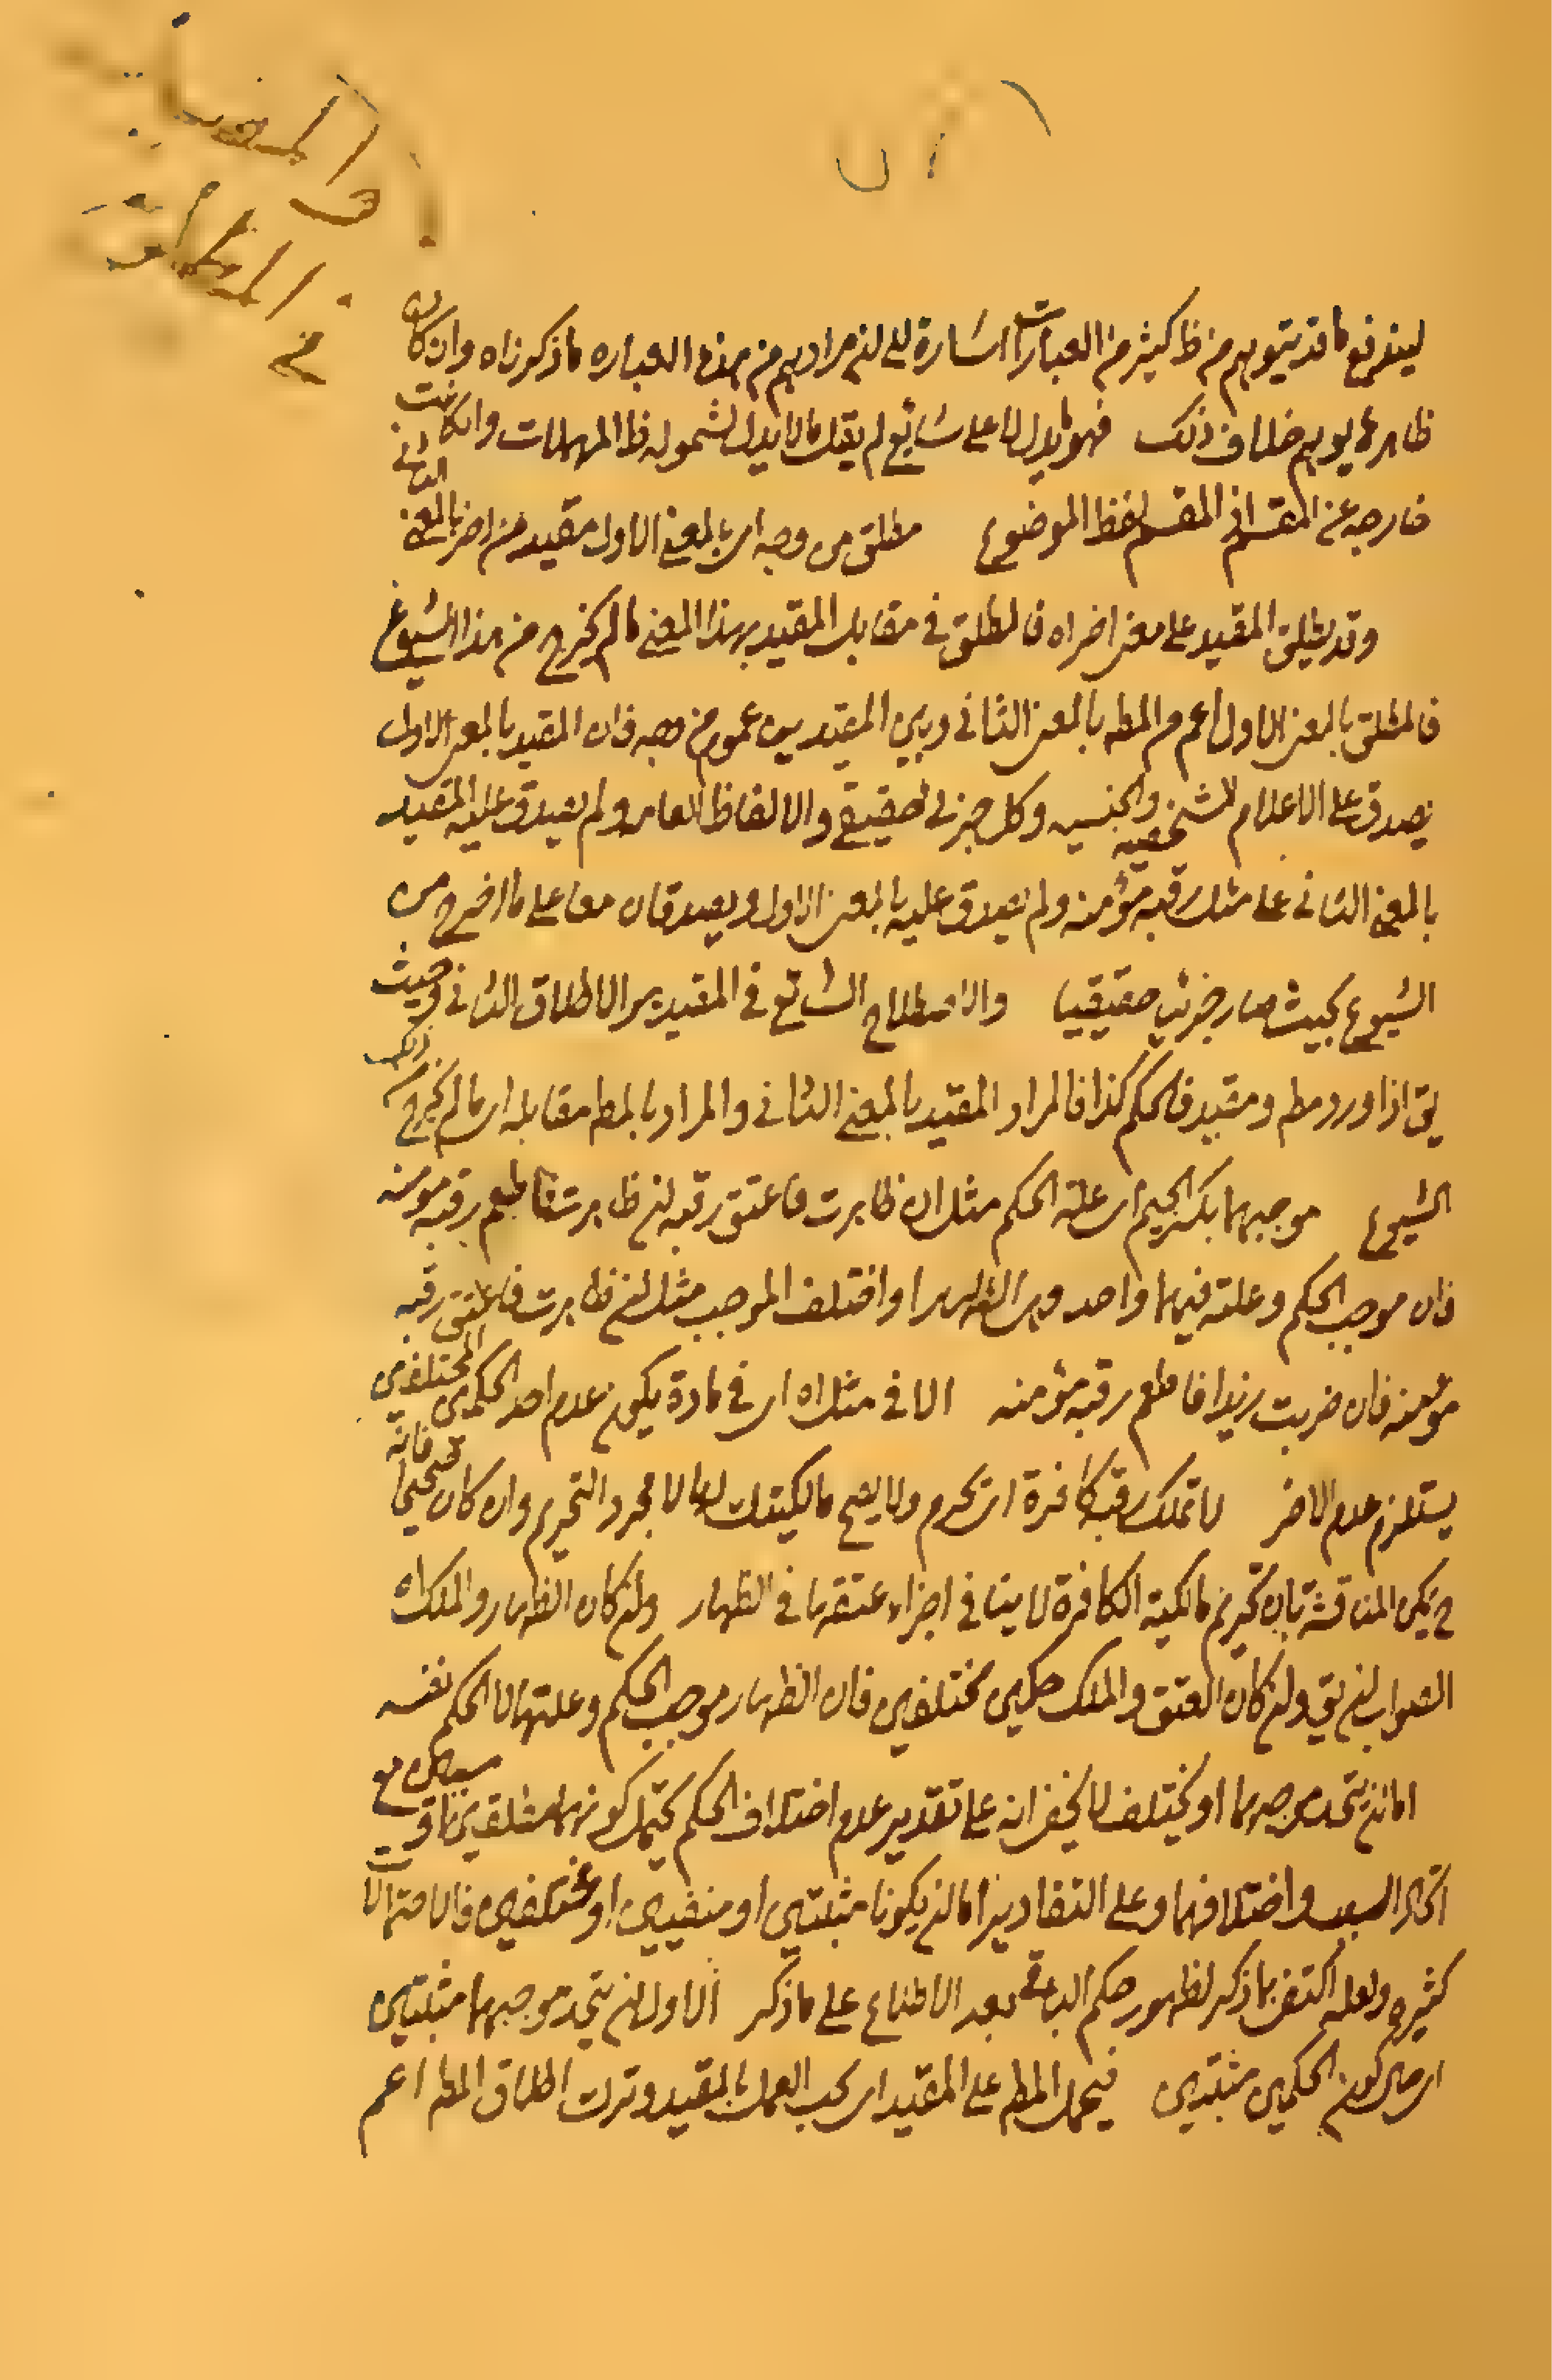 في المطلق
والمقيد
ليندفع ما قد يتوهم من ظ كثير من العبارات اشارة الى ان مرادهم من هذه العباره ما ذكرناه وان كان
ظاهرها يوهم خلاف ذلك فهو ما دل لا على شائع لم يقل ما لا يدل لشموله ظ المهملات وان كانت
خارجه عن المقسم اذ المقسم لفظ الموضوع مطلق من وجه اى بالمعنى الاول مقيد من اخر بالمعنى الثانى
وقد يطلق المقيد على معنى اخر اه فالمطلق في مقابل المقيد بهذا المعنى ما لم يخرج من هذا الشيوع
فالمطلق بالمعنى الاول اعم من المطه بالمعنى الثاني وبين المقيدين عموم من وجه فان المقيد بالمعنى الاول
يصدق على الاعلام الشخصيه والجنسيه وكل جزئى حقيقى والالفاظ العامه ولم يصدق عليه المقيد
بالمعنى الثاني على مثل رقبه مؤمنه ولم يصدق عليه بالمعنى الاول ويصدقان معا على ما اخرج من
الشيوع بحيث صار جزئيا حقيقيا والاصطلاح الشائع في المقيد هو الاطلاق الثاني وحيث
يق اذا ورد مط ومقيد فالحكم كذا فالمراد المقيد بالمعنى الثاني والمراد بالمط مقابله اى ما لم يخرج عن ذلك
الشيوع موجبهما بكسر الجيم اى علة الحكم مثل ان ظاهرت فاعتق رقبه ان ظاهرت فاطعم رقبه مومنه
فان موجب الحكم وعلته فيهما واحد وهى الظهار او اختلف الموجب مثل ان ظاهرت فاعتق رقبه
مؤمنه فان ضربت زيدا فاطعم رقبه مؤمنه الا في مثل اه اى في مادة يكون عدم احد الحكمين المختلفين
يستلزم عدم الاخر لا تملك رقبه كافرة اى تحرم ولا يصح مالكيتك لها لا مجرد التحريم وان كان صحيحا فانه
ح يمكن المناقشه بان تحريم مالكية الكافرة لا ينافي اجزاء عتقها في الظهار وان كان الظهار والملك اه
الصواب ان يق وان كان العتق والملك حكمين مختلفين فان الظهار موجب الحكم وعلتها لا الحكم نفسه
اما ان يتحد موجبهما او يختلف لا يخفى انه على تقدير عدم اختلاف الحكم يحتمل كونهما مطلقين مع
اتحاد السبب واختلافهما وعلى التقادير اما ان يكونا مثبتين او منفيين او مختلفين فالاحتمالات
كثيره ولعله اكتفى بما ذكر لظهور حكم الباقى بعد الاطلاع على ما ذكر الاول ان يتحد موجبهما مثبتين
اى حال كون الحكمين مثبتين فيحمل المط على المقيد اى يجب العمل بالمقيد وترك اطلاق المطه اعم